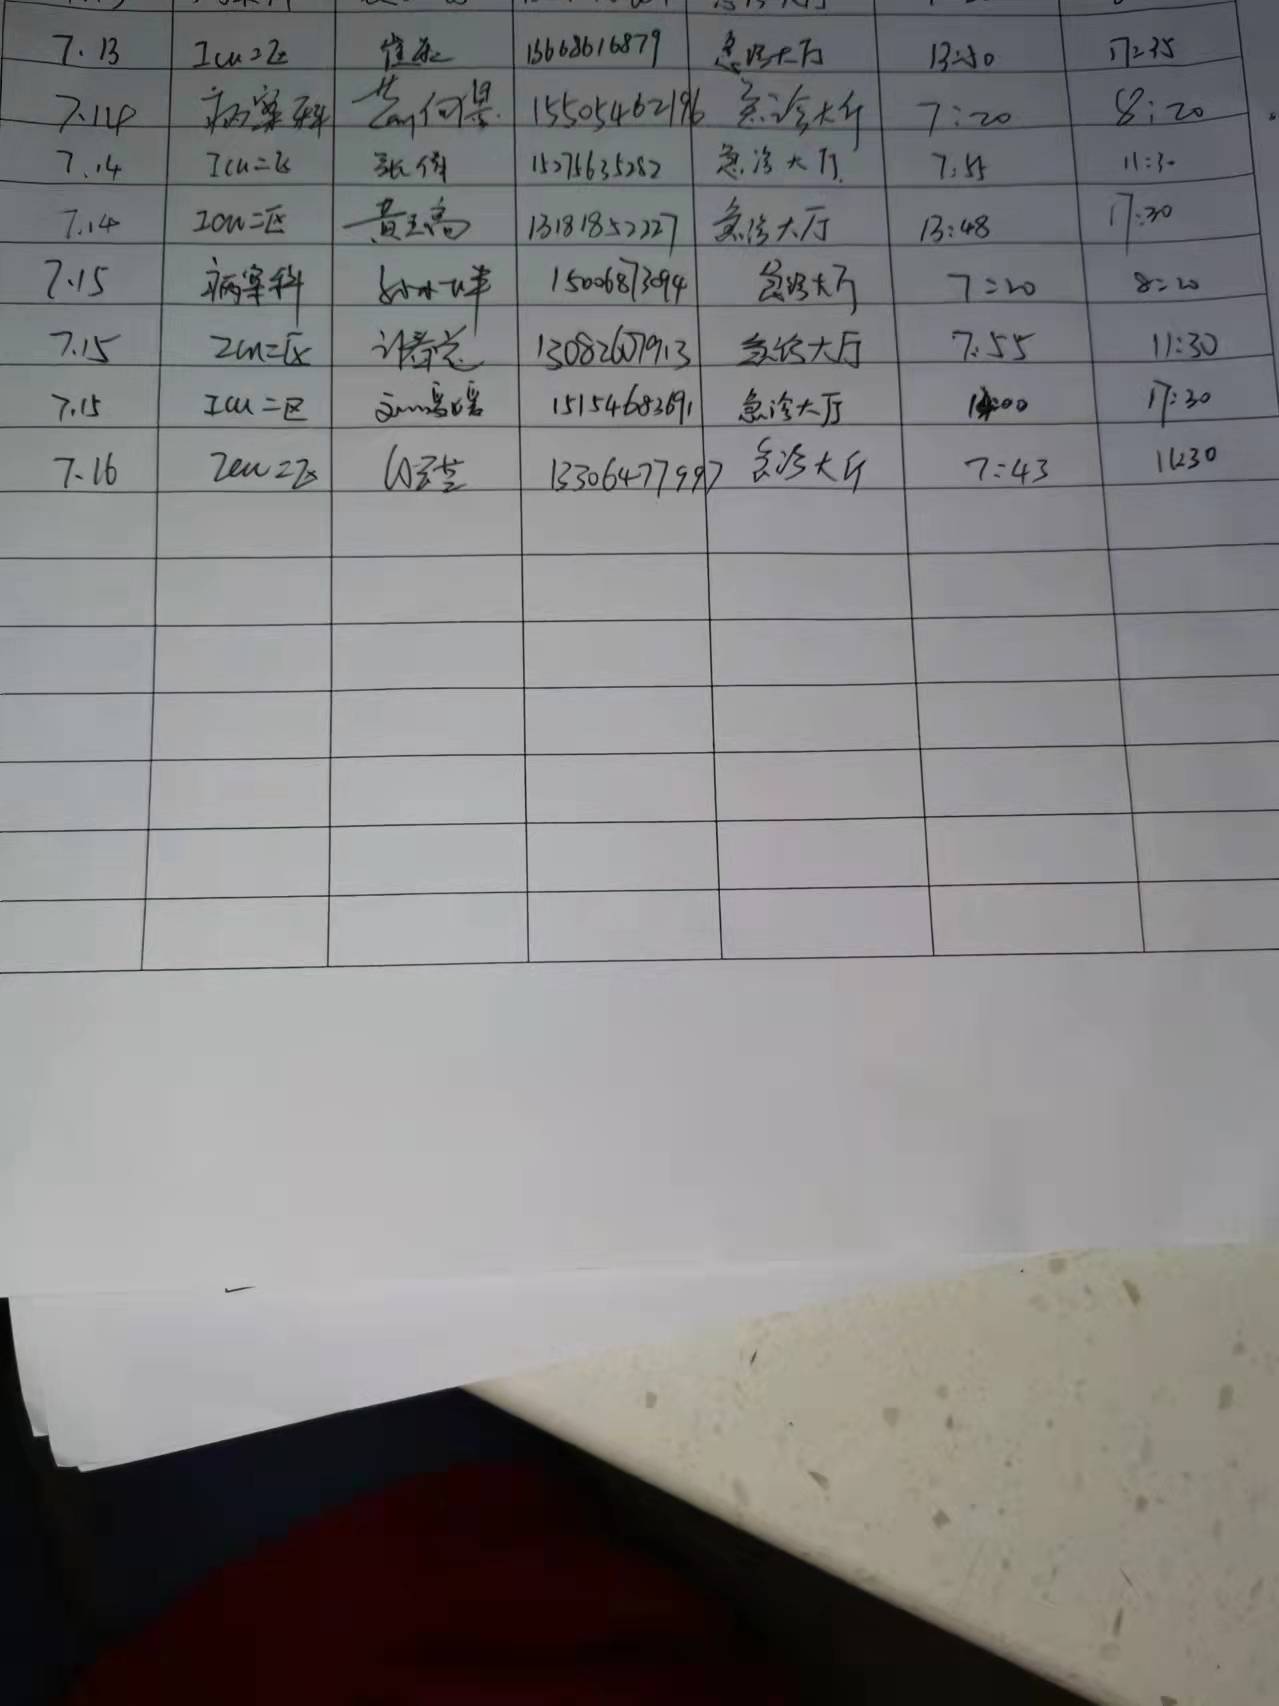 7.13 ICU二区 崔 13668616879 急诊大厅 13:50 17:35
7.14 病案科 15505462196 急诊大厅 7:20 8:20
7.14 ICU二区 张倩 15275635282 急诊大厅 7:55 11:30
7.14 ICU二区 黄 13181852227 急诊大厅 13:48 17:30
7.15 病案科 15006873094 急诊大厅 7:20 8:20
7.15 ICU二区 许春 13082607913 急诊大厅 7:55 11:30
7.15 ICU二区 15154683691 急诊大厅 17:30
7.16 ICU二区 13306477997 急诊大厅 7:43 11:30